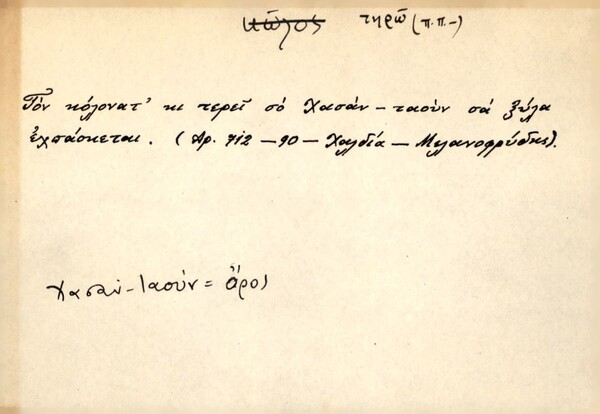 κῶλος τηρῶ (π.π.-)
Τὸν κόλονατ' κι τερεῖ σὸ Χασάν-ταοὺν σὰ ξύλα
ἐχπάσκεται. (Ἀρ. 712 -90- Χαλδία - Μελανοφρύδης).
Χασαν-Ιαούν = ὄρος